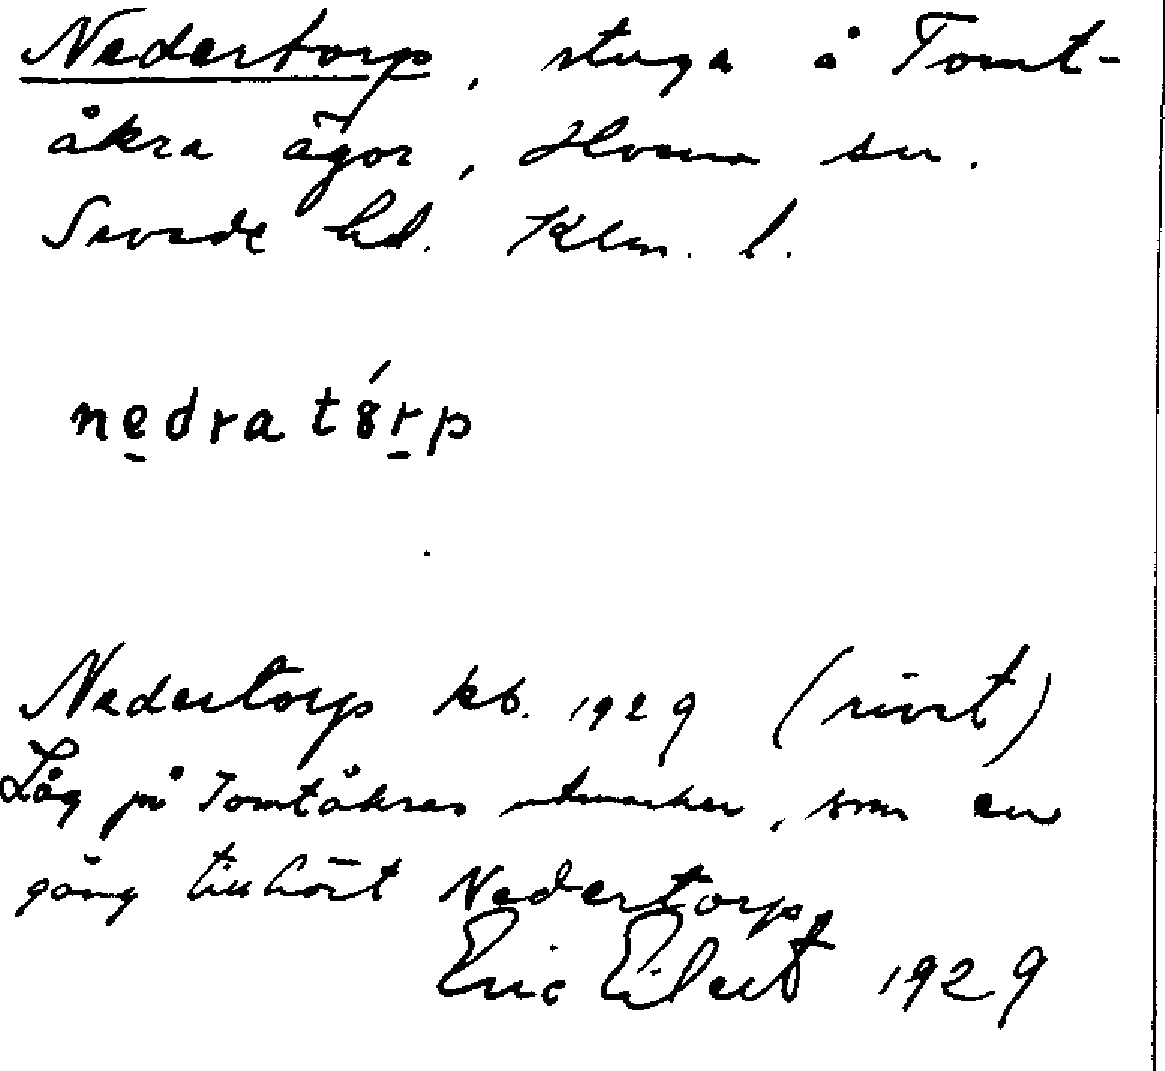 Nedertorp, stuga å Tomt-
åkra ägor, Hvena sn.
Sevede hd. Klm. l.
nedra tórp
Nedertorp kb. 1929 (rivet)
Låg på Tomtåkras utmarker, som en
gång tillhört Nedertorp.
Eric Eilert 1929